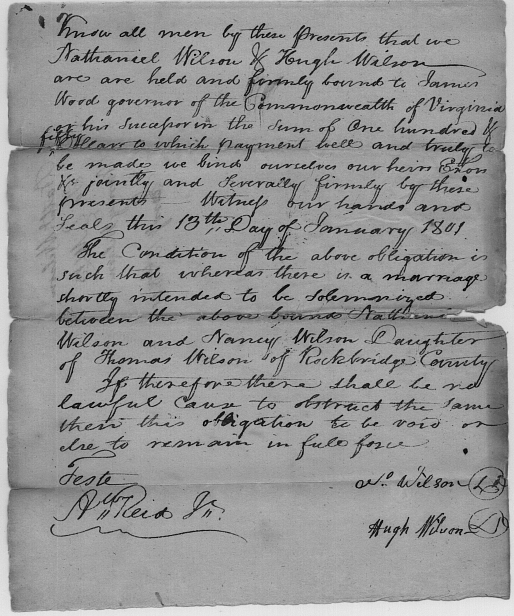 Know all men by these Presents that we
Nathaniel Wilson & Hugh Wilson
are are held and firmly bound to James
Wood governor of the Commonwealth of Virginia
or his Successor in the Sum of One hundred &
fifty Dollars to which payment well and truly to
be made we bind ourselves our heirs Exors
&c jointly and Severally firmly by these
presents Witness our hands and
Seals this 13th Day of January 1801
The Condition of the above obligation is
such that whereas there is a marriage
shortly intended to be Solemnized
between the above bound Nathaniel
Wilson and Nancy Wilson Daughter
of Thomas Wilson of Rockbridge County
If therefore there shall be no
lawful cause to obstruct the same
then this obligation to be void or
else to remain in full force
Teste
Wilson LS
A Reid Jr.
Hugh Wilson LS